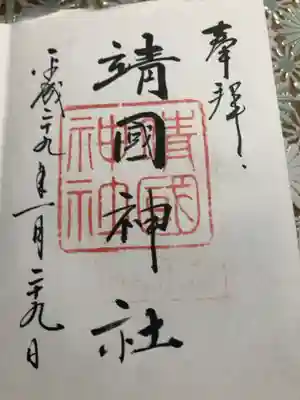 奉拝
靖國神社
靖國神社
平成二十九年一月二十九日